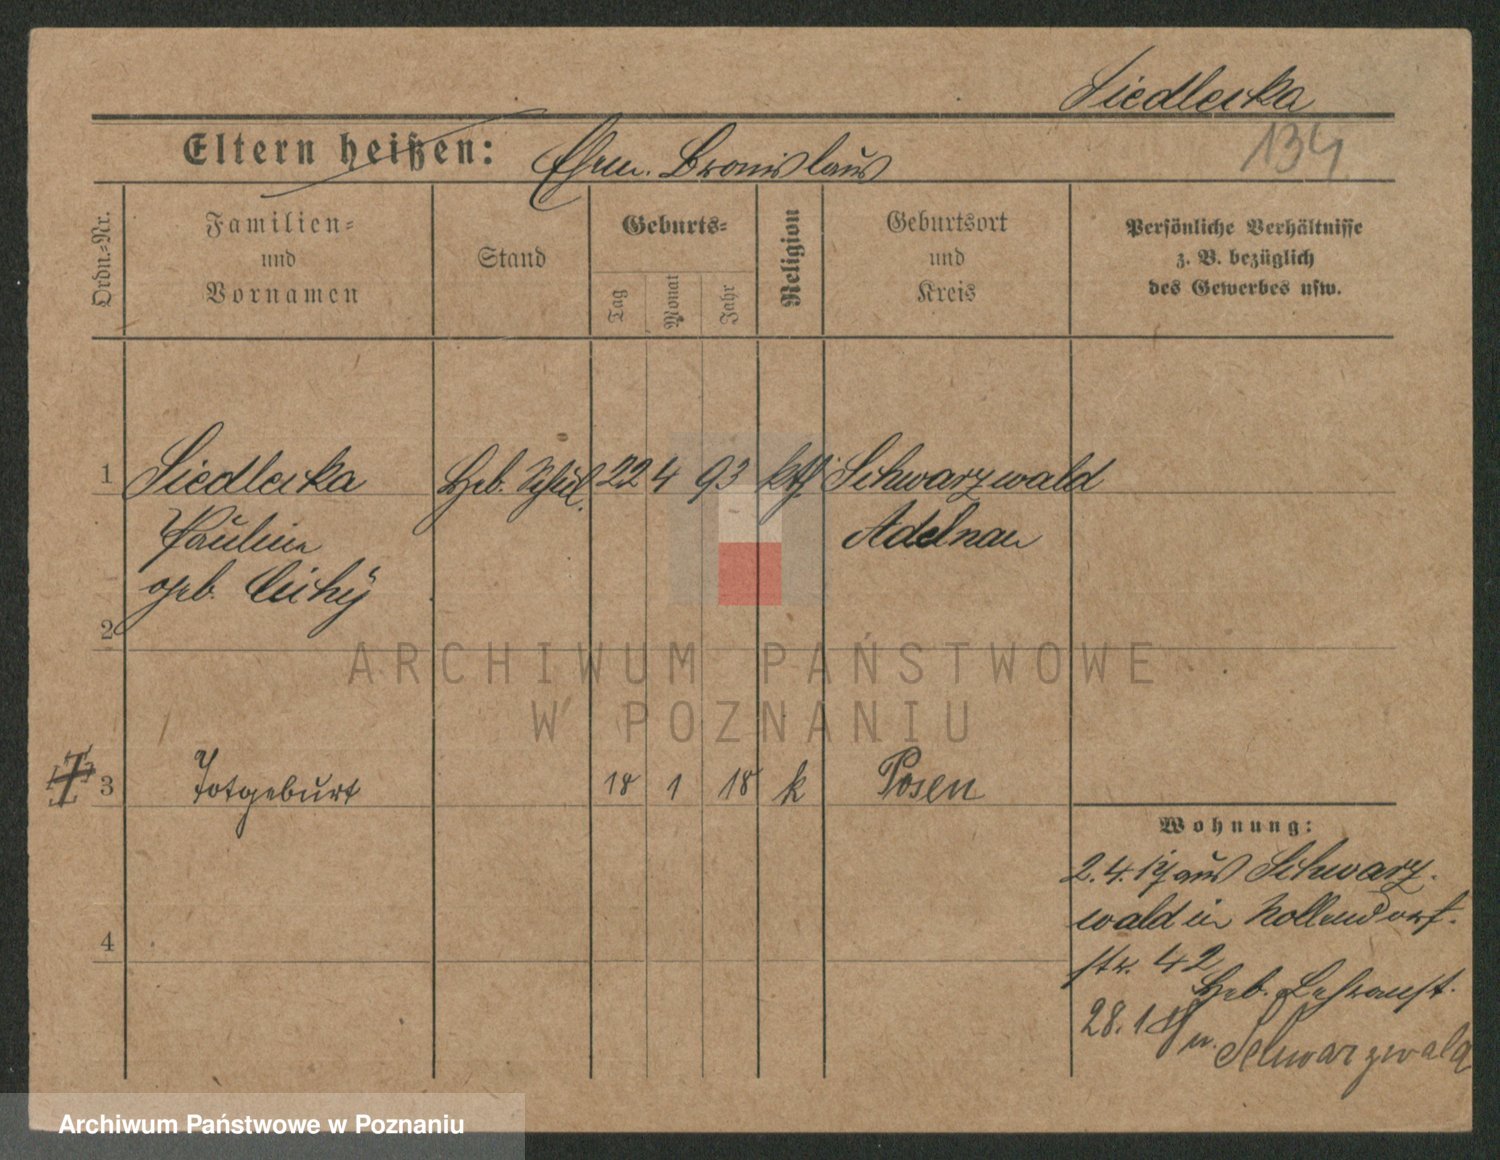 Siedlecka
134
Eltern heißen: Ehm. Bronislaus
Ordn.-Nr.
Familien-
und
Vornamen
Stand
Geburts-
Tag
Monat
Jahr
Religion
Geburtsort
und
Kreis
Persönliche Verhältnisse
z. B. bezüglich
des Gewerbes usw.
1 Siedlecka Heb. Schül. 22 4 93 kth Schwarzwald
Pauline Adelnau
geb. Cichy
2
3 Totgeburt 18 1 18 k Posen
Wohnung:
2.4.17 aus Schwarz-
wald in Nollendorf-
str. 42
Heb. Lehranst.
28.1.18 n. Schwarzwald
4
ARCHIWUM PAŃSTWOWE
W POZNANIU
Archiwum Państwowe w Poznaniu